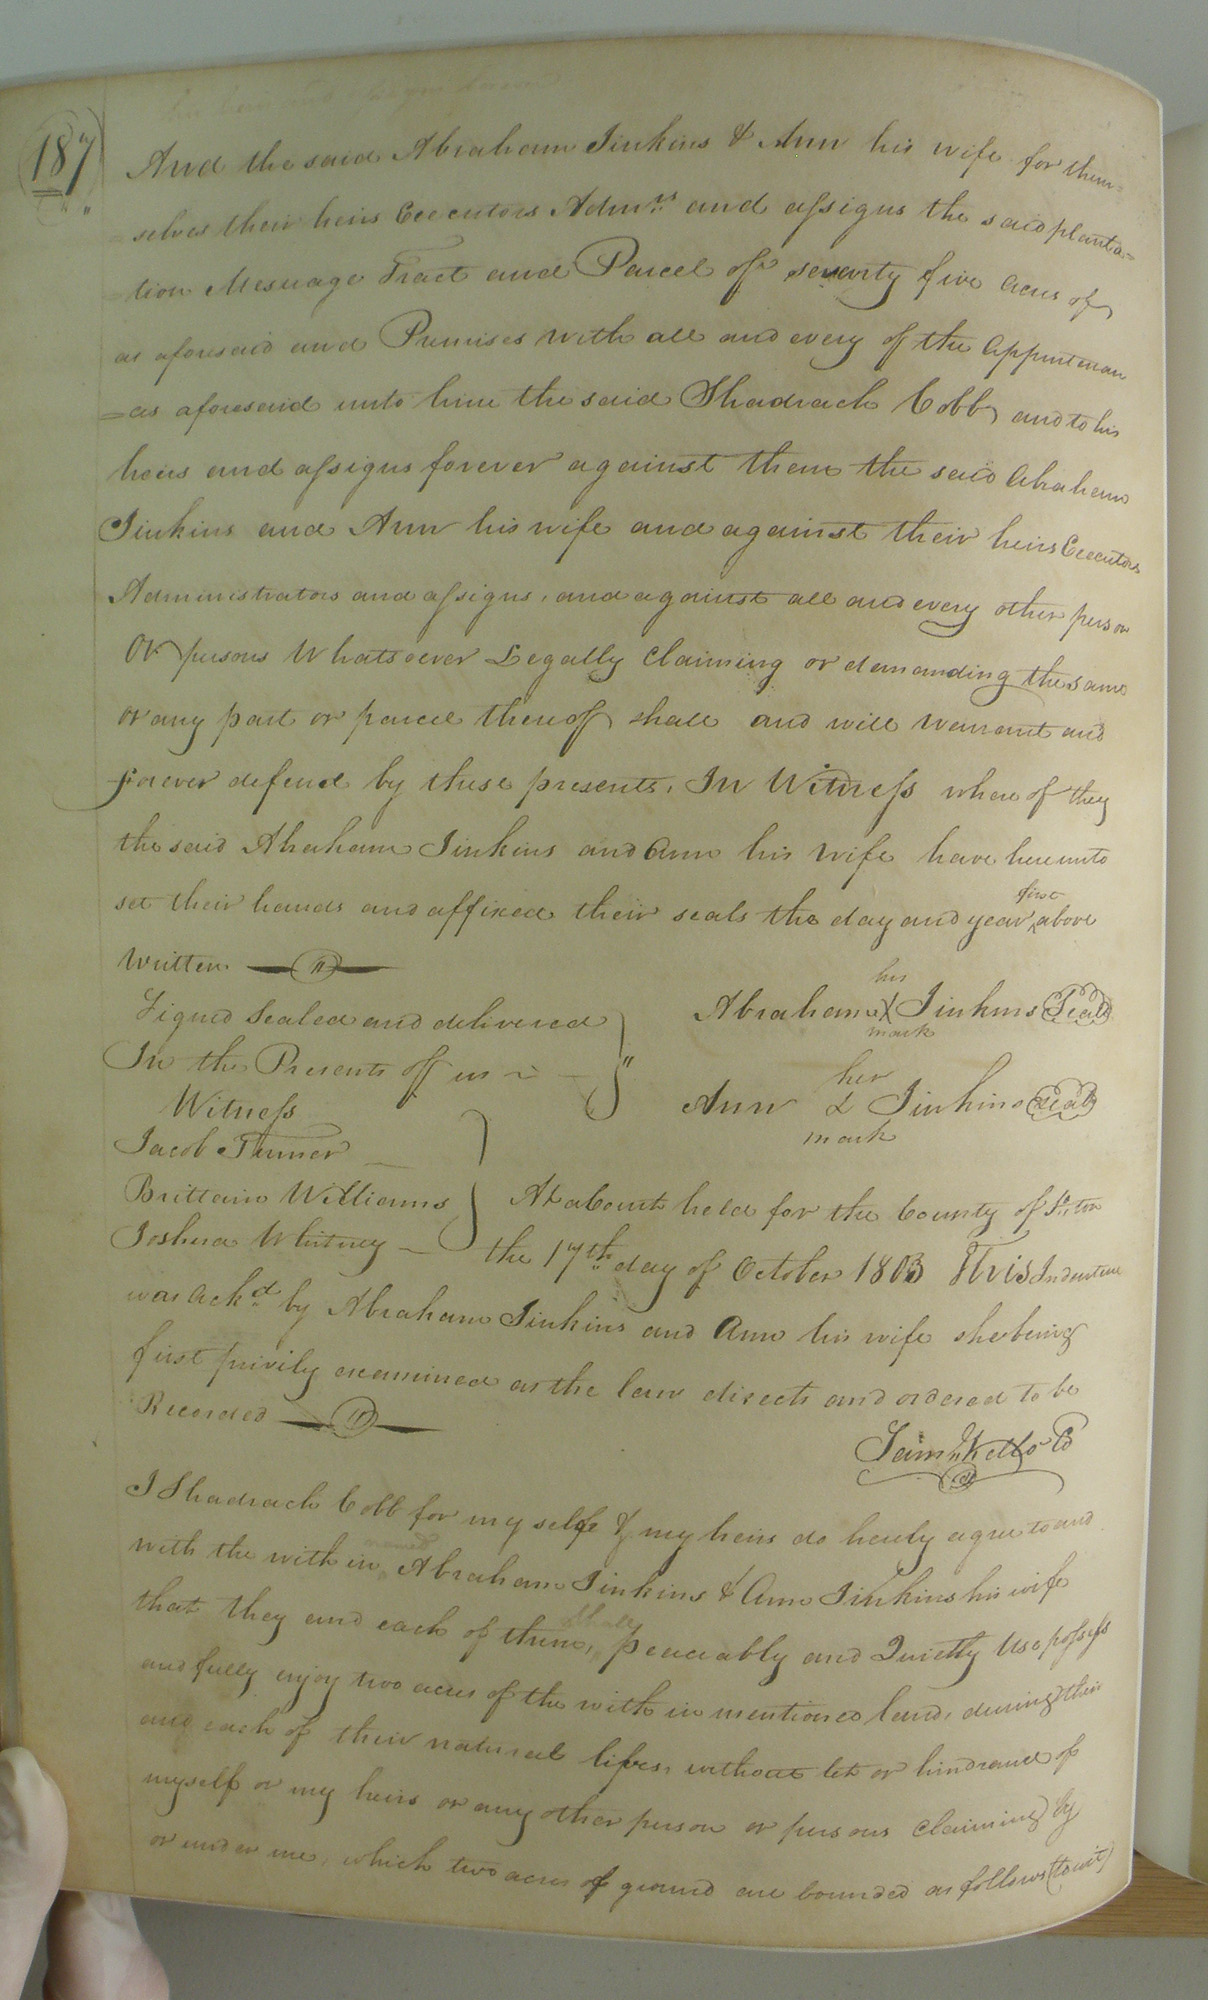 187
And the said Abraham Jinkins & Ann his wife for them=
=selves their heirs Executors Admrs and assigns the said planta=
=tion Mesuage Tract and Parcel of seventy five acres of
as aforesaid and Premises with all and every of the appurtenan
=as aforesaid unto him the said Shadrach Cobb and to his
heirs and assigns forever against them the said Abraham
Jinkins and Ann his wife and against their heirs Executors
Administrators and assigns, and against all and every other person
or persons Whatsoever Legally Claiming or demanding the same
or any part or parcel thereof shall and will warrant and
forever defend by these presents, In Witness where of they
the said Abraham Jinkins and Ann his wife have hereunto
set their hands and affixed their seals the day and year first above
Written
Signed Sealed and delivered
In the Presents off us
Witness
Jacob Turner
Brittain Williams
Joshua Whitney
his
Abraham X Jinkins Seal
mark
her
Ann X Jinkins Seal
mark
At a Court held for the County of
the 17th day of October 1803 This Indenture
was ackd by Abraham Jinkins and Ann his wife she being
first privily examined as the law directs and ordered to be
Recorded
I Shadrach Cobb for my selfe & my heirs do hereby agree to and
with the with in named Abraham Jinkins & Ann Jinkins his wife
that they and each of them, shall peaceably and Quietly Use possess
and fully enjoy two acres of the with in mentioned land, during their
and each of their natural lifes, without let or hindrance of
myself or my heirs or any other person or persons Claiming by
or under me, which two acres of ground are bounded as follows (to wit)